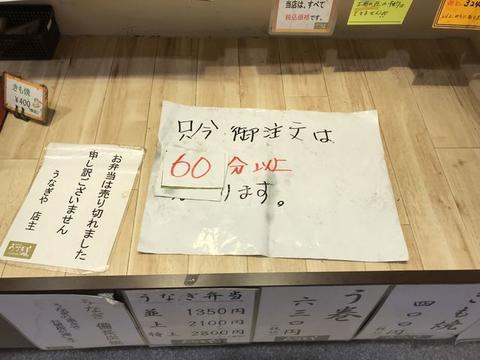 当店は、すべて
税込価格です。
きも焼
¥400
只今 御注文は
60分以上
ります。
お弁当は売り切れました
申し訳ございません
うなぎや 店主
うなぎ弁当
並 1350円
上 2100円
特上 2800円
う巻
六三〇円
きも焼
四〇〇